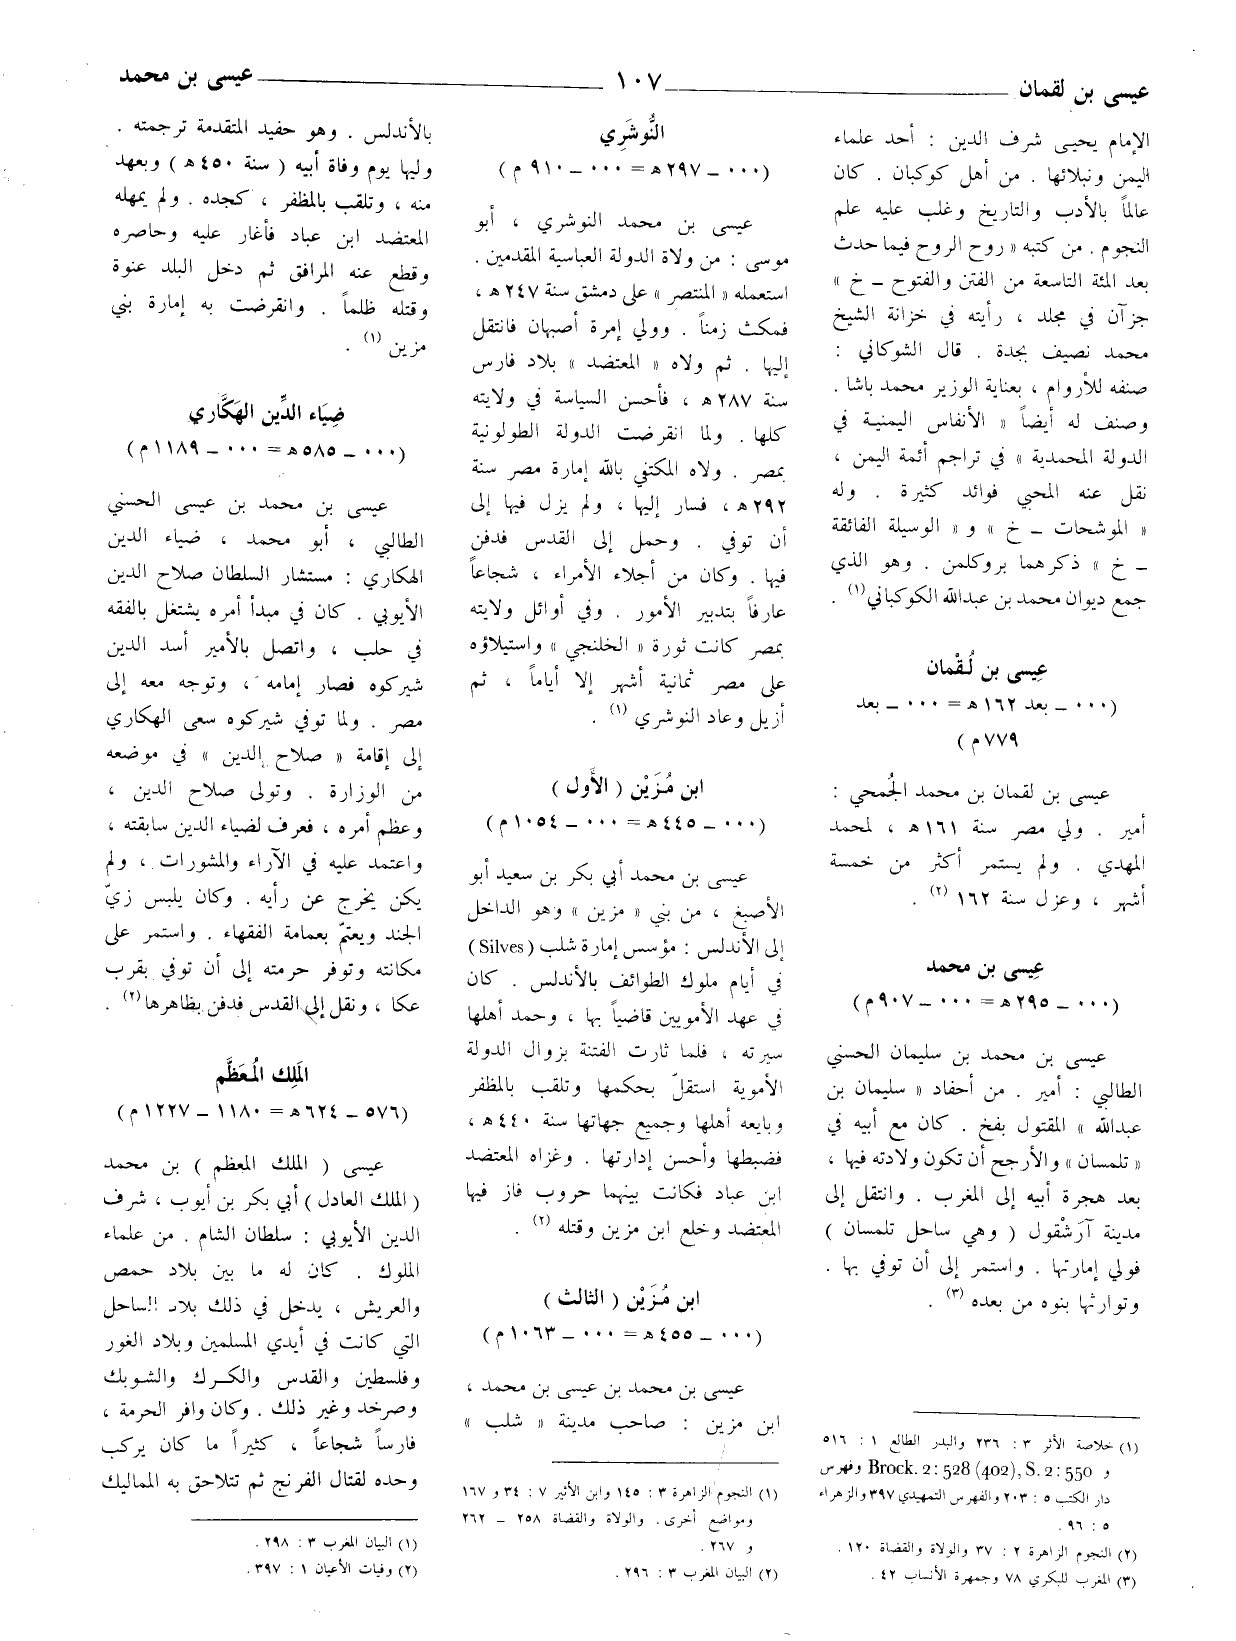 عيسى بن لقمان
١٠٧
عيسى بن محمد
الإمام يحيى شرف الدين : أحد علماء
اليمن ونبلائها . من أهل كوكبان . كان
عالماً بالأدب والتاريخ وغلب عليه علم
النجوم . من كتبه « روح الروح فيما حدث
بعد المئة التاسعة من الفتن والفتوح – خ »
جزآن في مجلد ، رأيته في خزانة الشيخ
محمد نصيف بجدة . قال الشوكاني :
صنفه للأروام ، بعناية الوزير محمد باشا .
وصنف له أيضاً « الأنفاس اليمنية في
الدولة المحمدية » في تراجم أئمة اليمن ،
نقل عنه المحبي فوائد كثيرة . وله
« الموشحات – خ » و « الوسيلة الفائقة
– خ » ذكرهما بروكلمن . وهو الذي
جمع ديوان محمد بن عبدالله الكوكباني (١) .
عِيسى بن لُقْمان
(٠٠٠ – بعد ١٦٢ ه = ٠٠٠ – بعد
٧٧٩ م)
عيسى بن لقمان بن محمد الجُمحي :
أمير . ولي مصر سنة ١٦١ ه ، لمحمد
المهدي . ولم يستمر أكثر من خمسة
أشهر ، وعزل سنة ١٦٢ (٢) .
عِيسى بن محمد
(٠٠٠ – ٢٩٥ ه = ٠٠٠ – ٩٠٧ م)
عيسى بن محمد بن سليمان الحسني
الطالبي : أمير . من أحفاد « سليمان بن
عبدالله » المقتول بفخ . كان مع أبيه في
« تلمسان » والأرجح أن تكون ولادته فيها ،
بعد هجرة أبيه إلى المغرب . وانتقل إلى
مدينة آرَشْقول ( وهي ساحل تلمسان )
فولي إمارتها . واستمر إلى أن توفي بها .
وتوارثها بنوه من بعده (٣) .
(١) خلاصة الأثر ٣ : ٢٣٦ والبدر الطالع ١ : ٥١٦
و Brock. 2: 528 (402), S. 2: 550 وفهرس
دار الكتب ٥ : ٢٠٣ والفهرس التمهيدي ٣٩٧ والزهراء
٥ : ٩٦ .
(٢) النجوم الزاهرة ٢ : ٣٧ والولاة والقضاة ١٢٠ .
(٣) المغرب للبكري ٧٨ وجمهرة الأنساب ٤٢ .
النُّوشَرِي
(٠٠٠ – ٢٩٧ ه = ٠٠٠ – ٩١٠ م)
عيسى بن محمد النوشري ، أبو
موسى : من ولاة الدولة العباسية المقدمين .
استعمله « المنتصر » على دمشق سنة ٢٤٧ ه ،
فمكث زمناً . وولي إمرة أصبهان فانتقل
إليها . ثم ولاه « المعتضد » بلاد فارس
سنة ٢٨٧ ه ، فأحسن السياسة في ولايته
كلها . ولما انقرضت الدولة الطولونية
بمصر . ولاه المكتفي بالله إمارة مصر سنة
٢٩٢ ه ، فسار إليها ، ولم يزل فيها إلى
أن توفي . وحمل إلى القدس فدفن
فيها . وكان من أجلاء الأمراء ، شجاعاً
عارفاً بتدبير الأمور . وفي أوائل ولايته
بمصر كانت ثورة « الخلنجي » واستيلاؤه
على مصر ثمانية أشهر إلا أياماً ، ثم
أزيل وعاد النوشري (١) .
ابن مُزَيْن ( الأَول )
(٠٠٠ – ٤٤٥ ه = ٠٠٠ – ١٠٥٤ م)
عيسى بن محمد أبي بكر بن سعيد أبو
الأصبغ ، من بني « مزين » وهو الداخل
إلى الأندلس : مؤسس إمارة شلب (Silves)
في أيام ملوك الطوائف بالأندلس . كان
في عهد الأمويين قاضياً بها ، وحمد أهلها
سيرته ، فلما ثارت الفتنة بزوال الدولة
الأموية استقلّ بحكمها وتلقب بالمظفر
وبايعه أهلها وجميع جهاتها سنة ٤٤٠ ه ،
فضبطها وأحسن إدارتها . وغزاه المعتضد
ابن عباد فكانت بينهما حروب فاز فيها
المعتضد وخلع ابن مزين وقتله (٢) .
ابن مُزَيْن ( الثالث )
(٠٠٠ – ٤٥٥ ه = ٠٠٠ – ١٠٦٣ م)
عيسى بن محمد بن عيسى بن محمد ،
ابن مزين : صاحب مدينة « شلب »
(١) النجوم الزاهرة ٣ : ١٤٥ وابن الأثير ٧ : ٣٤ و ١٦٧
ومواضع أخرى . والولاة والقضاة ٢٥٨ – ٢٦٢
و ٢٦٧ .
(٢) البيان المغرب ٣ : ٢٩٦ .
بالأندلس . وهو حفيد المتقدمة ترجمته .
وليها يوم وفاة أبيه ( سنة ٤٥٠ ه ) وبعهد
منه ، وتلقب بالمظفر ، كجده . ولم يمهله
المعتضد ابن عباد فأغار عليه وحاصره
وقطع عنه المرافق ثم دخل البلد عنوة
وقتله ظلماً . وانقرضت به إمارة بني
مزين (١) .
ضِيَاء الدِّين الهَكَّاري
(٠٠٠ – ٥٨٥ ه = ٠٠٠ – ١١٨٩ م)
عيسى بن محمد بن عيسى الحسني
الطالبي ، أبو محمد ، ضياء الدين
الهكاري : مستشار السلطان صلاح الدين
الأيوبي . كان في مبدأ أمره يشتغل بالفقه
في حلب ، واتصل بالأمير أسد الدين
شيركوه فصار إمامه ، وتوجه معه إلى
مصر . ولما توفي شيركوه سعى الهكاري
إلى إقامة « صلاح الدين » في موضعه
من الوزارة . وتولى صلاح الدين ،
وعظم أمره ، فعرف لضياء الدين سابقته ،
واعتمد عليه في الآراء والمشورات ، ولم
يكن يخرج عن رأيه . وكان يلبس زيّ
الجند ويعتمّ بعمامة الفقهاء . واستمر على
مكانته وتوفر حرمته إلى أن توفي بقرب
عكا ، ونقل إلى القدس فدفن بظاهرها (٢) .
المَلِك المُعَظَّم
(٥٧٦ – ٦٢٤ ه = ١١٨٠ – ١٢٢٧ م)
عيسى ( الملك المعظم ) بن محمد
( الملك العادل ) أبي بكر بن أيوب ، شرف
الدين الأيوبي : سلطان الشام . من علماء
الملوك . كان له ما بين بلاد حمص
والعريش ، يدخل في ذلك بلاد الساحل
التي كانت في أيدي المسلمين وبلاد الغور
وفلسطين والقدس والكرك والشوبك
وصرخد وغير ذلك . وكان وافر الحرمة ،
فارساً شجاعاً ، كثيراً ما كان يركب
وحده لقتال الفرنج ثم تتلاحق به المماليك
(١) البيان المغرب ٣ : ٢٩٨ .
(٢) وفيات الأعيان ١ : ٣٩٧ .